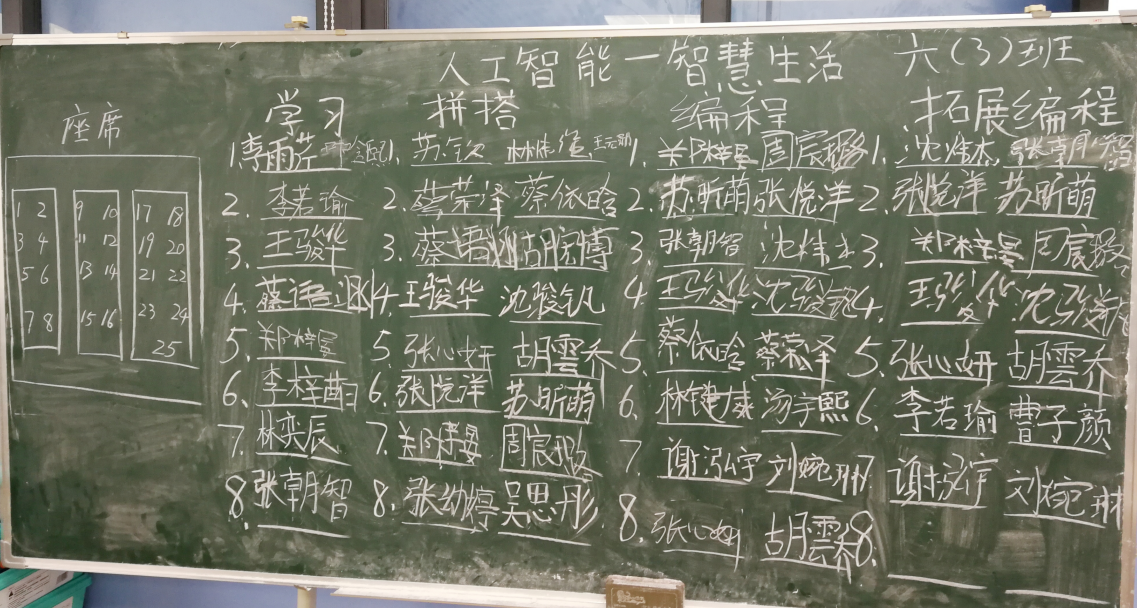 人工智能一智慧生活 六(3)班
座席
学习 拼搭 编程 拓展编程
1. 李雨芹 1. 苏钦 1. 郑梓晏 周宸璐 1. 沈炜杰 张朝智
2. 李若瑜 2. 蔡荣泽 蔡依晗 2. 苏昕萌 张悦洋 2. 张悦洋 苏昕萌
3. 王骏华 3. 蔡语 胡宸博 3. 张朝智 沈炜杰 3. 郑梓晏 周宸璐
4. 蔡语 4. 王骏华 沈骏钒 4. 王骏华 沈骏钒 4. 王骏华 沈骏钒
5. 郑梓晏 5. 张心妍 胡雲乔 5. 蔡依晗 蔡荣泽 5. 张心妍 胡雲乔
6. 李梓 6. 张悦洋 苏昕萌 6. 林键威 汤宇熙 6. 李若瑜 曹子颜
7. 林奕辰 7. 郑梓晏 周宸璐 7. 谢泓宇 刘婉琳 7. 谢泓宇 刘婉琳
8. 张朝智 8. 张幼婷 吴思彤 8. 张心妍 胡雲乔 8.
1 2 9 10 17 18
3 4 11 12 19 20
5 6 13 14 21 22
7 8 15 16 23 24
25